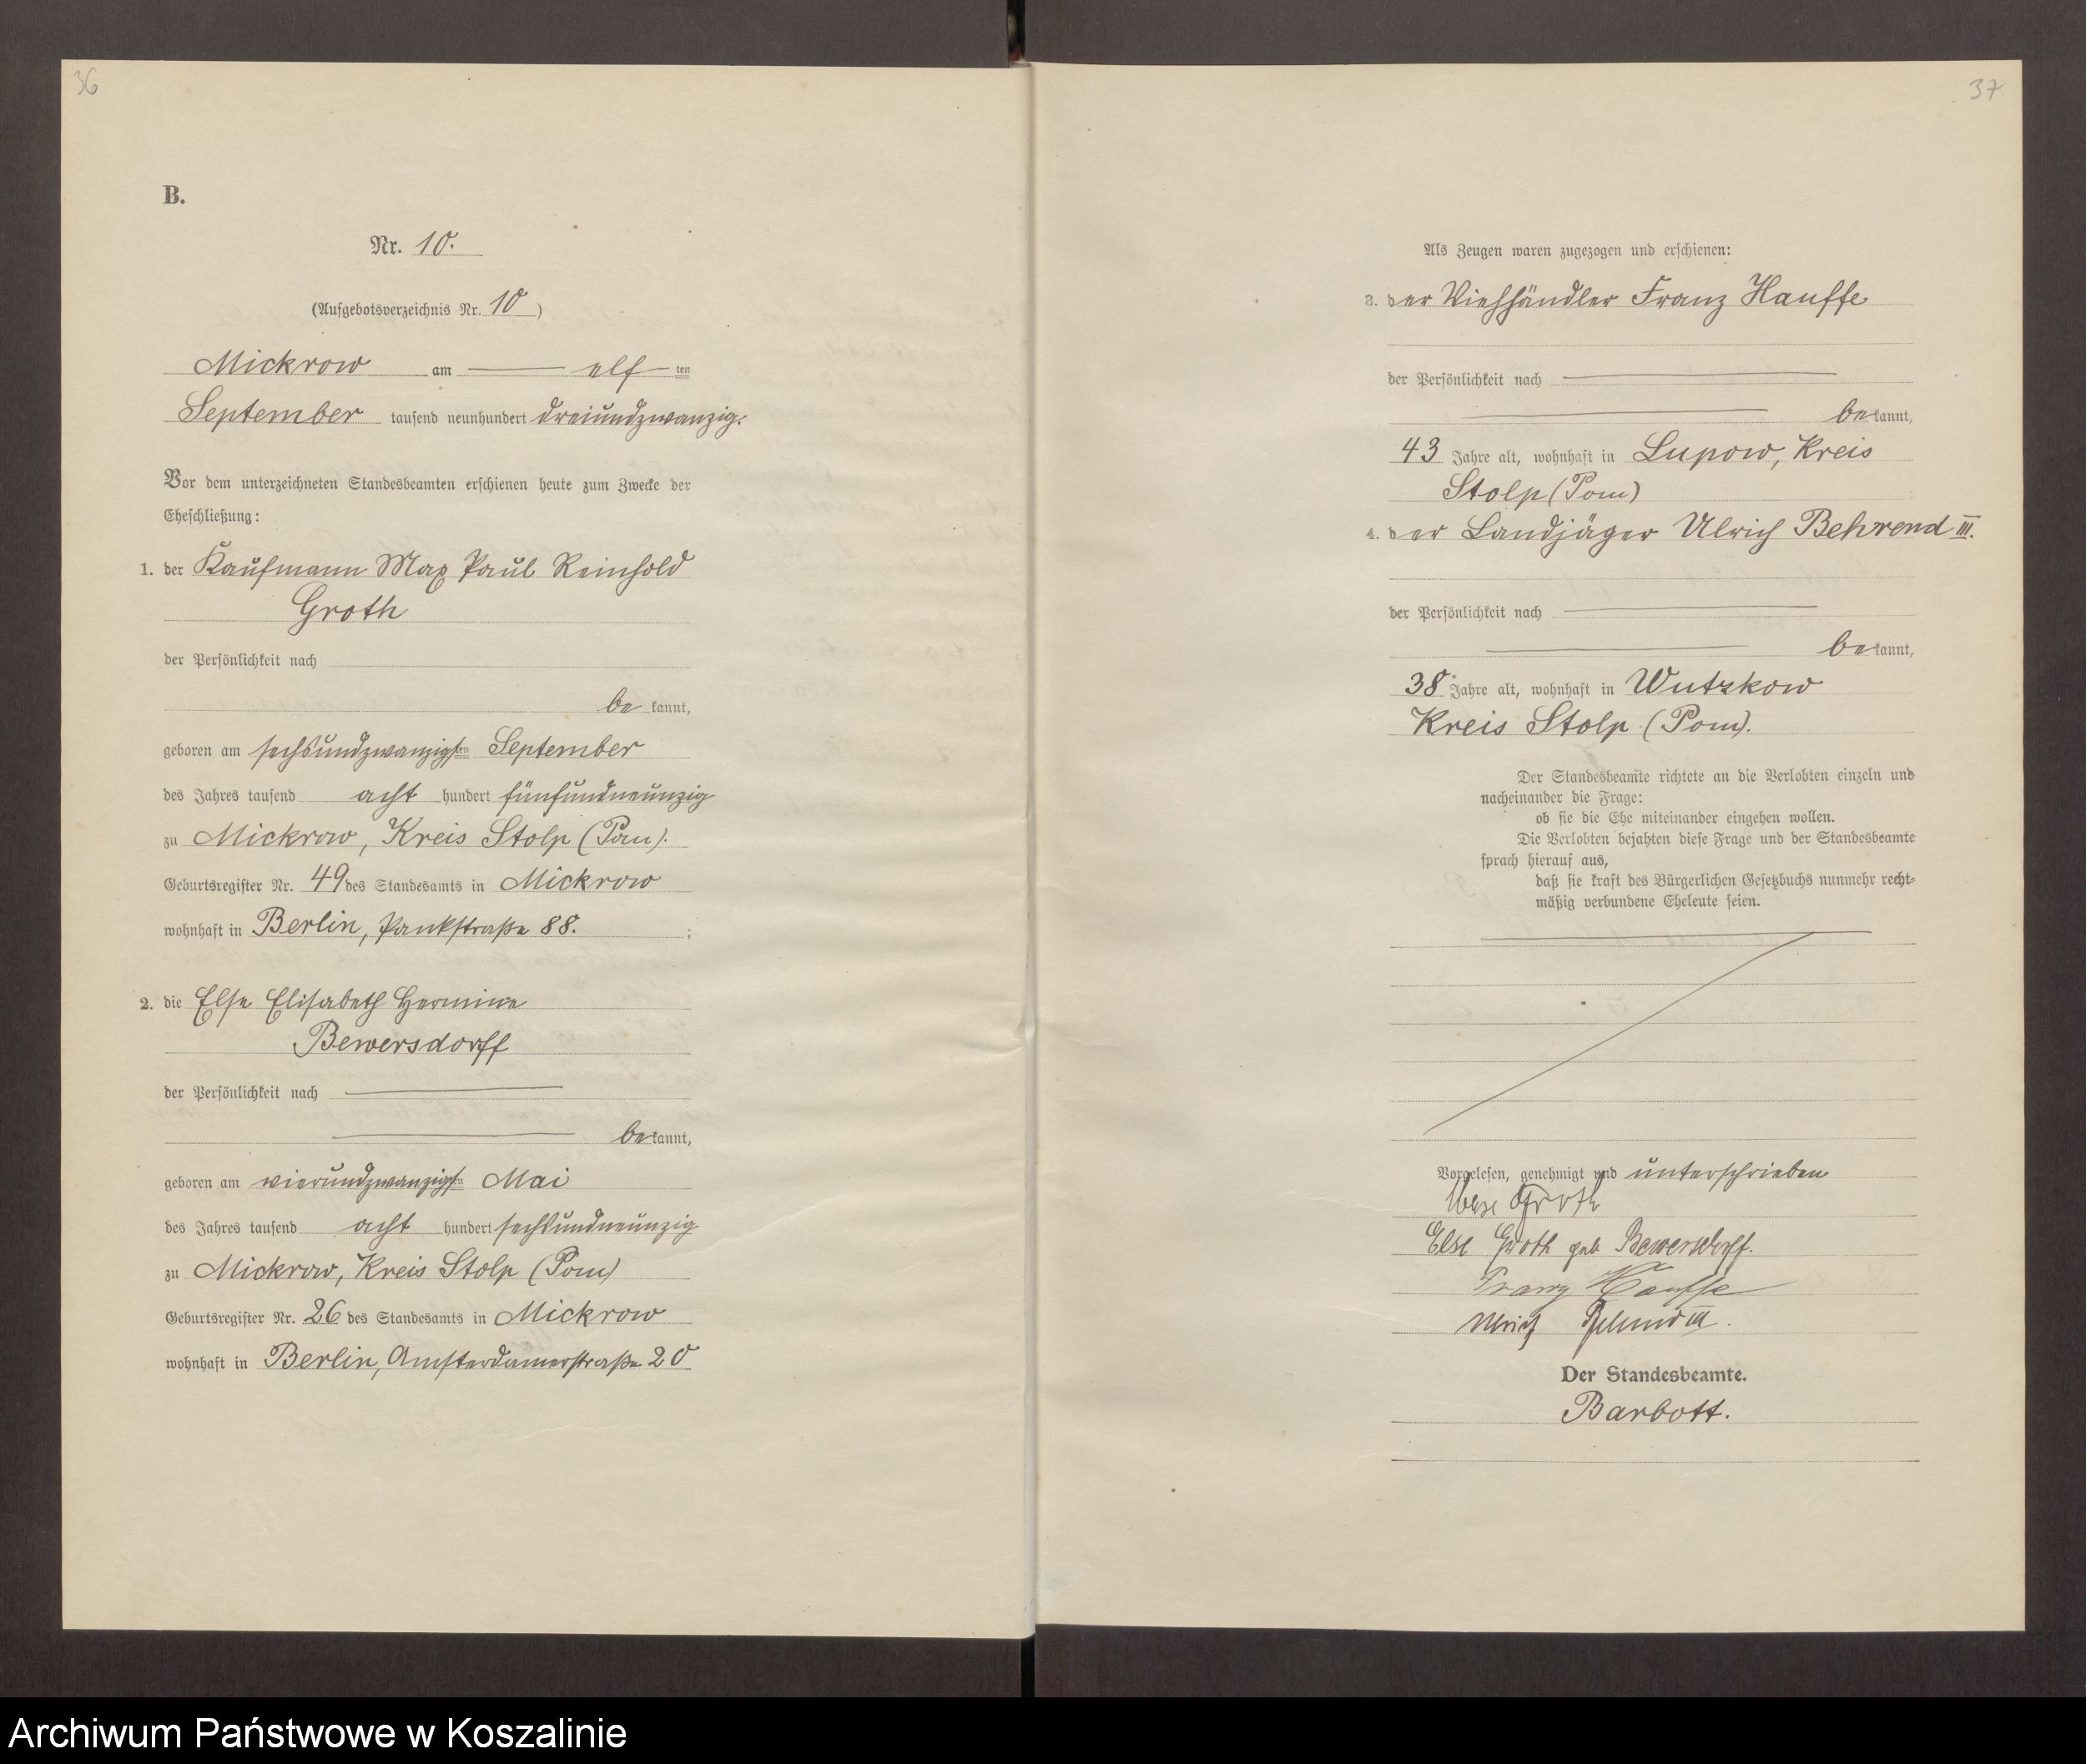 36
B.
Nr. 10.
(Aufgebotsverzeichnis Nr. 10)
Mickrow am elf ten
September tausend neunhundert dreiundzwanzig.
Vor dem unterzeichneten Standesbeamten erschienen heute zum Zwecke der
Eheschließung:
1. der Kaufmann Max Paul Reinhold
Groth
der Persönlichkeit nach
be kannt,
geboren am sechsundzwanzigsten September
des Jahres tausend acht hundert fünfundneunzig
zu Mickrow, Kreis Stolp (Pom).
Geburtsregister Nr. 49 des Standesamts in Mickrow
wohnhaft in Berlin, Pankstraße 88. ;
2. die Else Elisabeth Hermine
Bewersdorff
der Persönlichkeit nach
be kannt,
geboren am vierundzwanzigsten Mai
des Jahres tausend acht hundert sechsundneunzig
zu Mickrow, Kreis Stolp (Pom)
Geburtsregister Nr. 26 des Standesamts in Mickrow
wohnhaft in Berlin, Amsterdamerstraße 20
37
Als Zeugen waren zugezogen und erschienen:
3. der Viehhändler Franz Hauffe
der Persönlichkeit nach
be kannt,
43 Jahre alt, wohnhaft in Lupow, Kreis
Stolp (Pom)
4. der Landjäger Ulrich Behrend III.
der Persönlichkeit nach
be kannt,
38 Jahre alt, wohnhaft in Wutzkow
Kreis Stolp (Pom).
Der Standesbeamte richtete an die Verlobten einzeln und
nacheinander die Frage:
ob sie die Ehe miteinander eingehen wollen.
Die Verlobten bejahten diese Frage und der Standesbeamte
sprach hierauf aus,
daß sie kraft des Bürgerlichen Gesetzbuchs nunmehr recht-
mäßig verbundene Eheleute seien.
Vorgelesen, genehmigt und unterschrieben
Max Groth
Else Groth geb Bewersdorff.
Franz Hauffe
Ulrich Behrend III.
Der Standesbeamte.
Barbott.
Archiwum Państwowe w Koszalinie